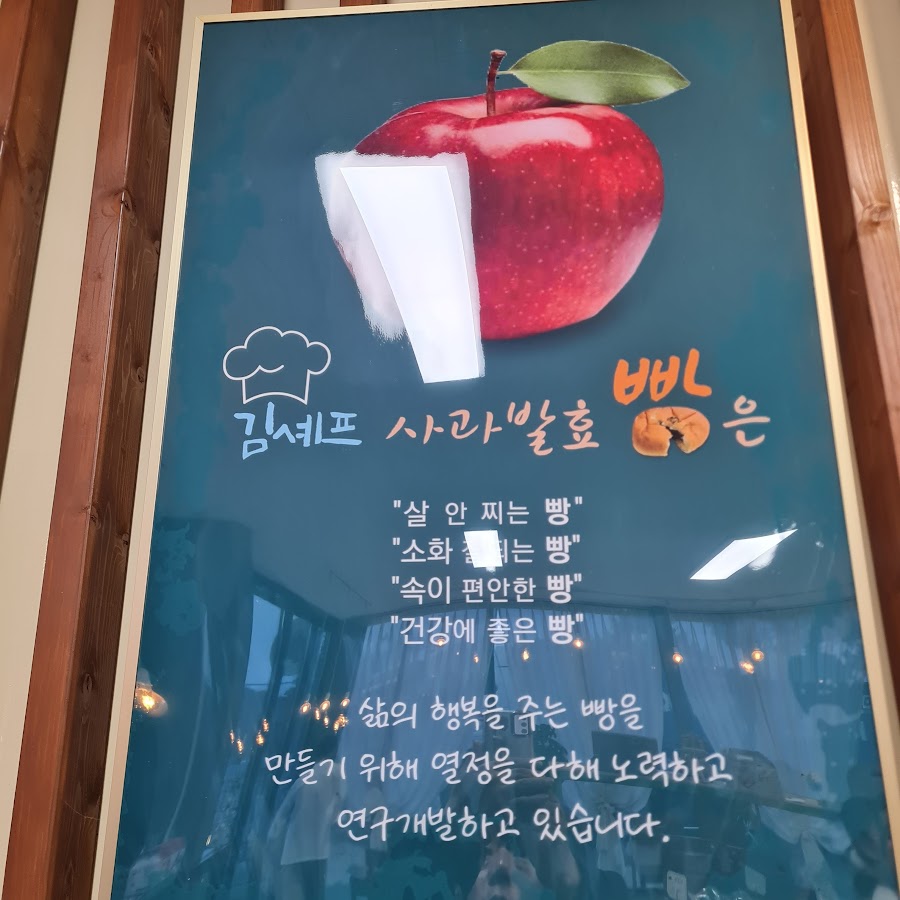 김셰프 사과발효 빵은
"살 안 찌는 빵"
"소화 잘되는 빵"
"속이 편안한 빵"
"건강에 좋은 빵"
삶의 행복을 주는 빵을
만들기 위해 열정을 다해 노력하고
연구개발하고 있습니다.